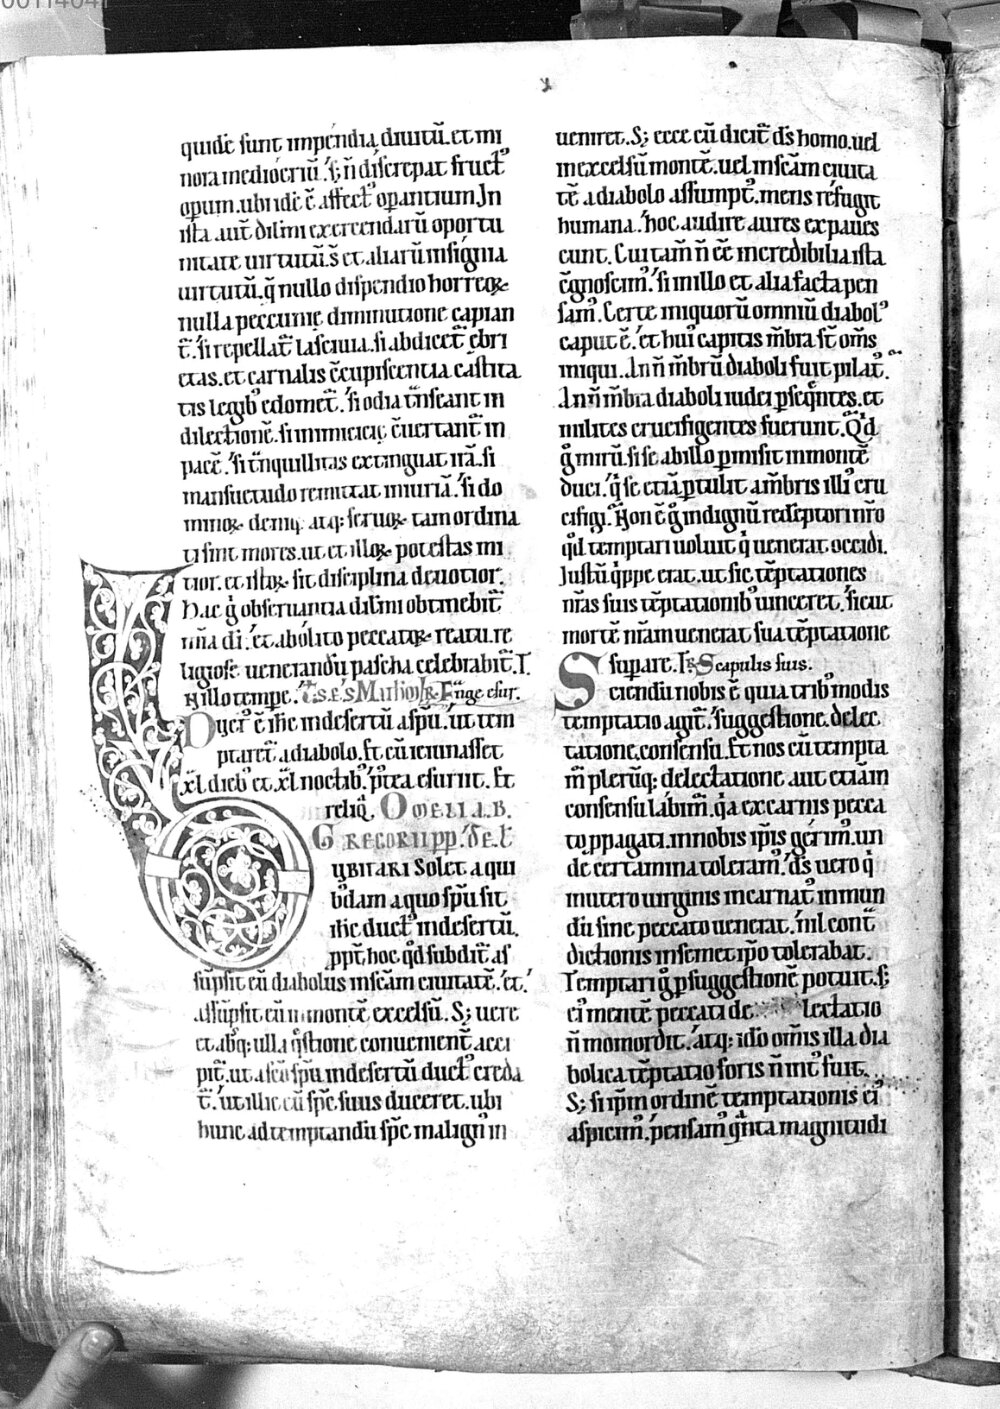 0011404
quidē sunt impendia diuitū. et mi
nora mediocriū. sꝫ n̄ discrepat fruct᷒
operum. ubi idē ē affect᷒ operantium. In
ista aut̄ dil̄mi exercendarū oportu
nitate uirtutū. s̄ et aliarū insignia
uirtutū. q̄ nullo dispendio horreoꝝ
nulla peccunię diminutione capian
t᷑. si repellat᷑ lasciuia. si abdicet᷑ ebri
etas. et carnalis c̄cupiscentia casti ta
tis legib᷒ edomet᷑. si odia t̄nseant in
dilectionē. si inimicicię c̄uertant᷑ in
pacē. si t̄nquillitas extinguat irā. si
mansuetudo remittat iniuriā. si do
minoꝝ deniq; atq; seruoꝝ tam ordina
ti sint mores. ut et illoꝝ potestas mi
tior. et istoꝝ sit disciplina deuotior.
Hac g̊ obseruantia dil̄mi obtinebit᷑
mīa di. et abolito peccatoꝝ reatu. re
ligiose uenerandū pascha celebrabit᷑. I
N illo tempr̄. Frange esur.
Duct᷒ ē ih̄c in desertū a sp̄u. ut tem
ptaret᷑ a diabolo. Et cū ieiunasset
xl dieb᷒ et xl noctib᷒. postea esuriit. Et
reliq̄. OMELIA. B.
GREGORII PP̄. DE. E
UBITARI Solet a qui
b᷒dam a quo sp̄u sit
ih̄c duct᷒ in desertū.
ppt̄ hoc qd̄ subdit᷑ as
sūpsit eū diabolus in sc̄am ciuitatē. et
assūpsit eū in montē excelsū. Sꝫ uere
et absq; ulla q̄stione conuenient̄ acci
pit᷑. ut a sc̄o sp̄u in desertū duct᷒ creda
t᷑. ut illic eū sp̄c suus duceret. ubi
hunc ad temptandū sp̄c malign᷒ in
ueniret. Sꝫ ecce cū dicit᷑ ds̄ homo. uel
in excelsū montē. uel in sc̄am ciuita
tē a diabolo assumpt᷒. mens refugit
humana. hoc audire aures expaues
cunt. Cui tam̄ n̄ ēē incredibilia ista
c̄gnoscim᷒. si in illo et alia facta pen
sam᷒. Certe iniquorū omniū diabol᷒
caput ē. et hui᷒ capitis m̄bra st̄ om̄s
iniqui. An n̄ m̄brū diaboli fuit pilat᷒.
An n̄ m̄bra diaboli iudei p̄seq̄ntes. et
milites crucifigentes fuerunt. Qd̄
g̊ mirū. si se ab illo p̄misit in montē
duci. q̄ se etiā p̄tulit a m̄bris illi᷒ cru
cifigi. Non ē g̊ indignū redēptori nr̄o
qd̄ temptari uoluit q̄ uenerat occidi.
Iustū q̄ppe erat. ut sic tēptationes
nr̄as suis tēptationib᷒ uinceret. sicut
mortē nr̄am uenerat sua tēptatione
supare. R̷ Scapulis suis.
Sciendū nobis ē quia trib᷒ modis
temptatio agit᷑. suggestione. delec
tatione. consensu. Et nos cū tempta
m᷑ plerūq; delectatione aut etiam
consensu labim᷑. q̄a ex carnis pecca
to ppagati. in nobis ip̄is gerim᷒. un
de certamina toleram᷒. Ds̄ uero q̄
in utero uirginis incarnat᷒ in mun
dū sine peccato uenerat. nil cont̄
dictionis in semet ip̄o tolerabat.
Temptari g̊ p suggestionē potuit. sꝫ
ei᷒ mentē peccati de lectatio
n̄ momordit. atq; ido om̄is illa dia
bolica tēptatio foris n̄ int᷒ fuit.
Sꝫ si ip̄m ordinē temptationis ei᷒
aspicim᷒. pensam᷒ q̄nta magnitudi